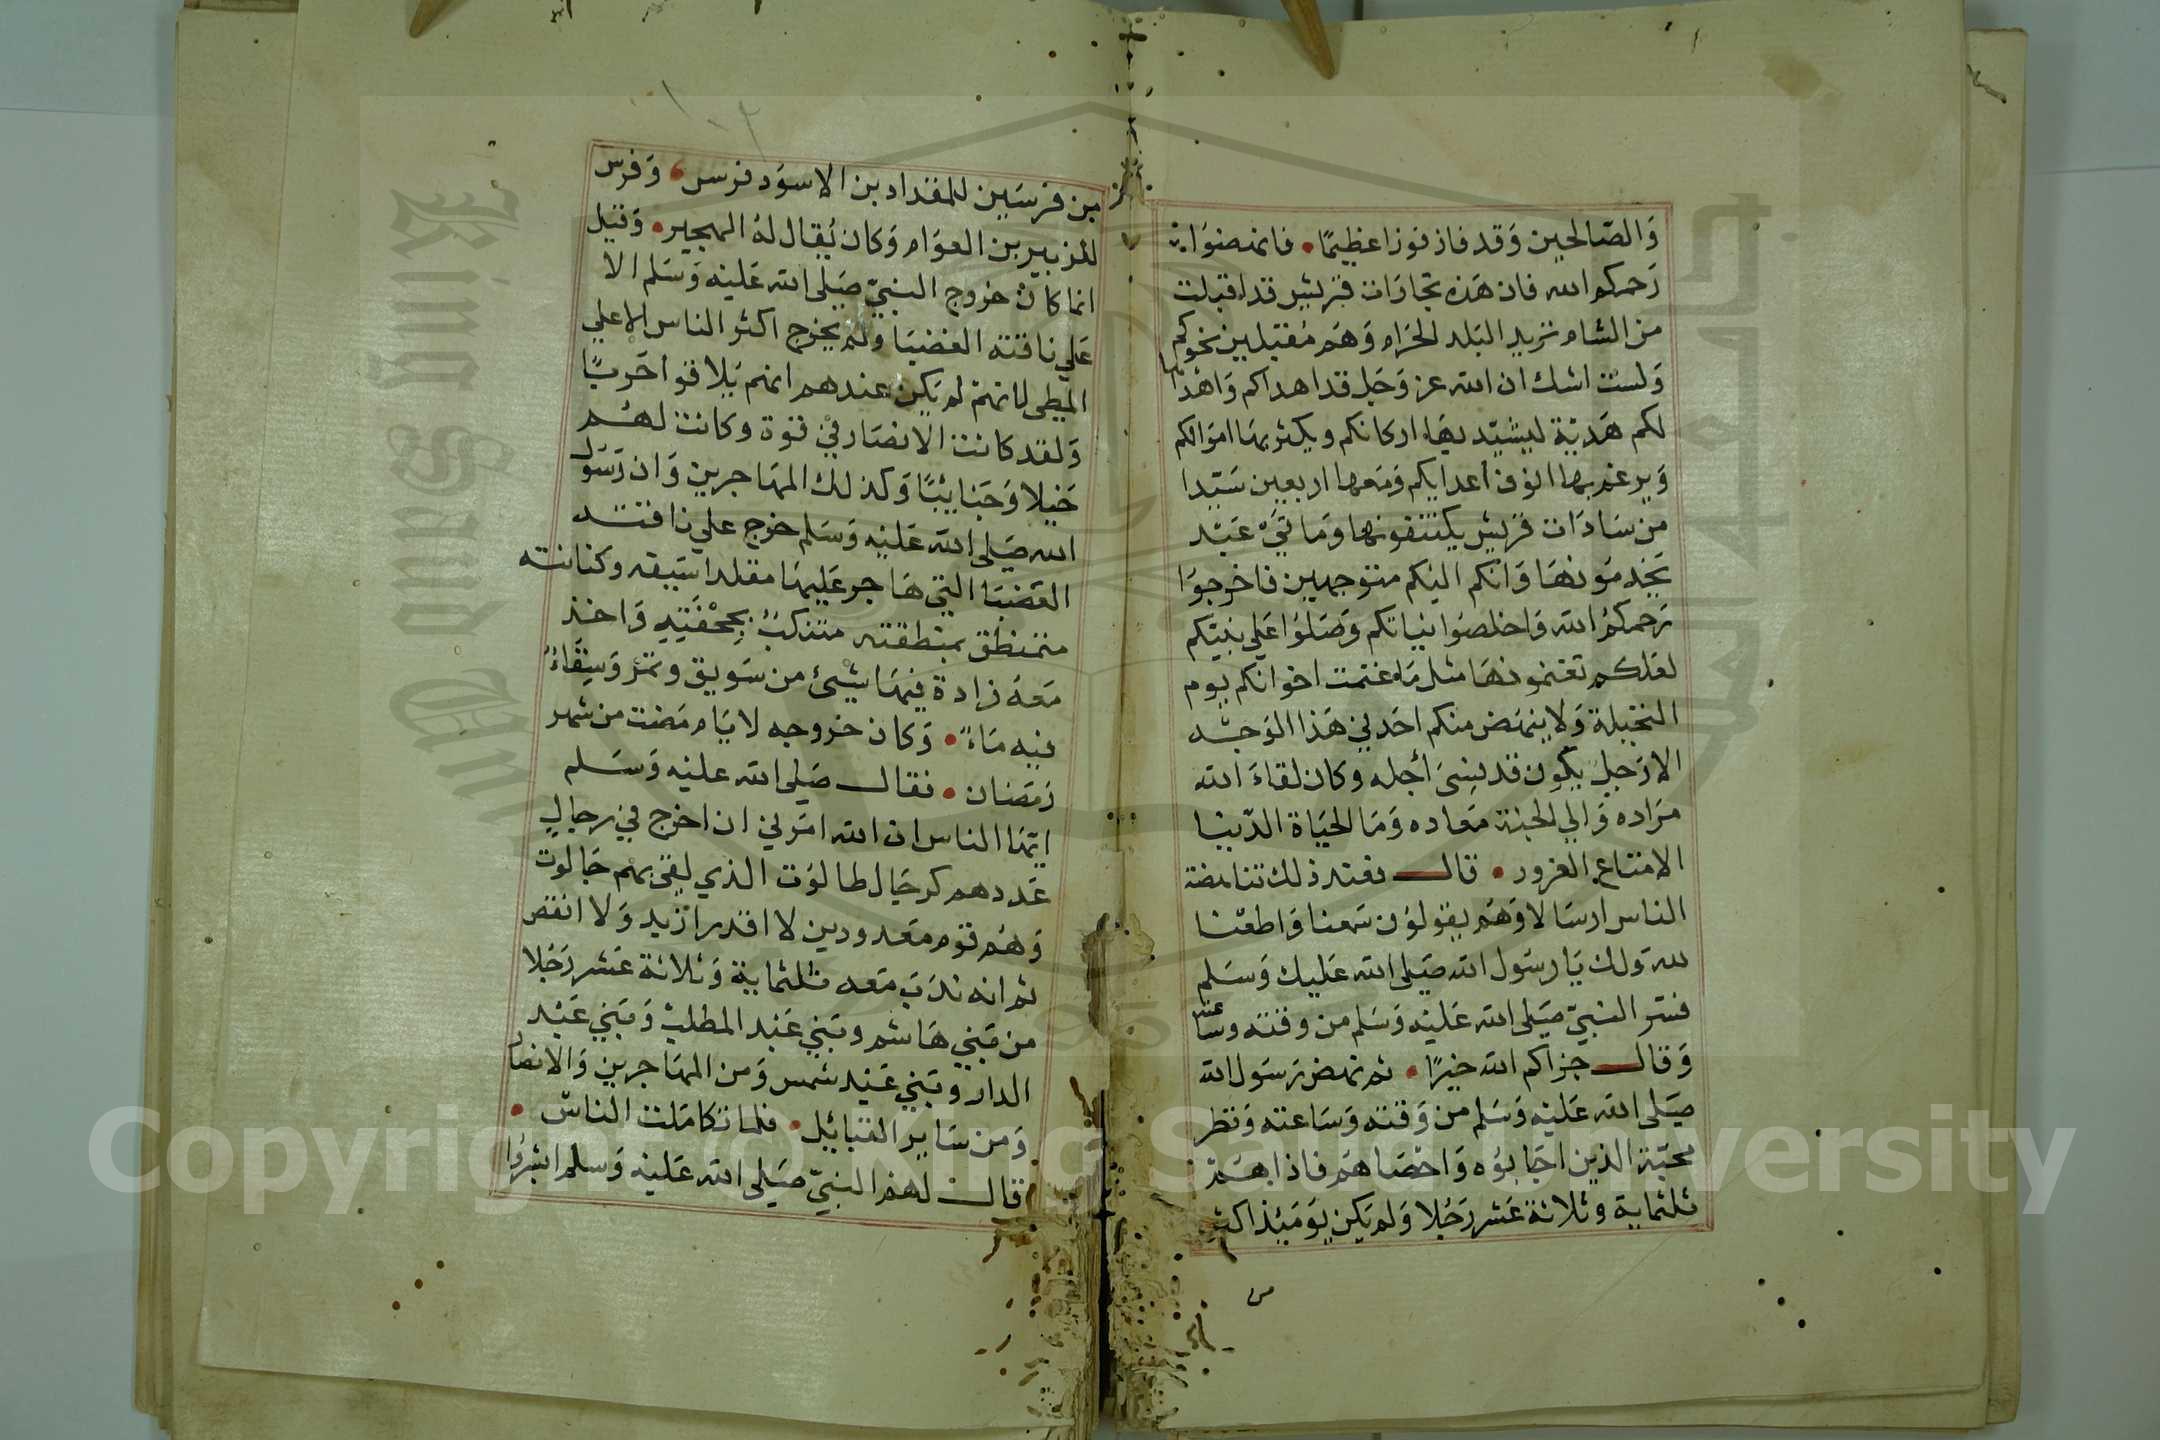 وَالصّالحين وَقد فاز فوزا عظيمًا • فانهضوا
رَحمكم الله فان هَذه تجارَات قريش قد اقبلت
من الشام تريد البَلد الحَرام وَهم مُقبلين نحوكم
وَلست اشك ان الله عز وَجل قد اهداكم وَاهْدَا لها
لكم هَديّة ليشيّد بهَا اركانكم ويكثر بهَا امَوالكم
وَيرغم بها انوف أعدايكم وَمَعها اربعين سَيّدا
من سَادَات قريش يكتنفونها وَمَايَتَيْ عَبْد
يَخدمونهَا وَانكم اليْكم متوجهين فاخرجوَا
رَحمكمُ الله وَاخلصوَا نياتكم وَصَلوُا عَلي نبيّكم
لعَلكم تغنمونهَا مثل مَا غنمت اخوَانكم يوم
النخيلة وَلا ينهَض منكم احَد في هَذا الوَجْه
الا رَجل يكون قد نسِىَ أجله وكان لقاءَ الله
مرَاده وَالي الجنة مَعاده وَمَا الحيَاة الدّنيا
الا متاع الغرور • قال فعند ذلك تناهضة
الناس ارسَالا وَهَم يقولوُن سَمعنا وَاطعْنا
لله وَلك يَا رسَول الله صَلي الله عَليك وَسَلم
فسر النبيّ صَلي الله عَليْه وَسَلم من وقته وساعته
وَقال جزاكم الله خيرًا • ثم نهض رَسَول الله
صَلي الله عَليْه وَسَلم من وَقته وَسَاعته وَنظر
محَبّة الذين اجَابوُه وَاحْصَاهَم فاذا هَمْ
ثلثماية وثلاثة عَشر رَجُلا وَلم يَكن يَومَيْذ اكثر
من
من فرسَين للمقداد بن الاسوَد فرس • وَفرس
للزبير بن العوَام وَكان يُقال لهُ الهجير • وَقيل
انما كان خروج النبيّ صَلي الله عَليْه وَسَلم الا
عَلي ناقته الغضبَا ولم يخرج اكثر الناس الا علي
المطي لانهم لم يَكن عندهم انهم يَلاقو أحَربًا
وَلقد كانت الانصَار في قوة وكانت لهُم
خيْلا وَجَنايبًا وَكذلك المهَاجرين وَان رَسَول
الله صَلي الله عَليْه وَسَلم خرج علي ناقته
العَضبَا التي هَاجر عَليهَا مقلدا سَيفه وكنانته
متمنطق بمنطقته متنكبٌ بجُحفتِهِ وَاخذ
مَعهُ زادة فيهَا شيْئ من سَويق وتمْر وَسِقَاءٌ
فيه مَاءً • وَكان خروجه لايَام مَضت من شهر
رَمَضان • فقال صَلي الله عليْه وَسَلم
ايّهَا الناس ان الله امَرَني ان اخرج في رجالٍ
عَددهم كرجَال طالوُت الذي لقي بهْم جَالوت
وَهم قوم مَعدودين لا اقدر ازيد وَلا انقص
ثم انه ندَبَ مَعه ثلثماية وَثلاثة عَشر رَجُلا
من بَني هَاشم وبَني عَبْد المطلبْ وَبَني عَبْد
الدار وبَني عَبْد شمس وَمن المهَاجرين وَالانصار
وَمن سَاير القبايْل • فلما تكامَلت الناسْ •
قال لهم النبيّ صَلي الله عَليْه وَسلم ابشرُوا
King Saud University
Copyright © King Saud University